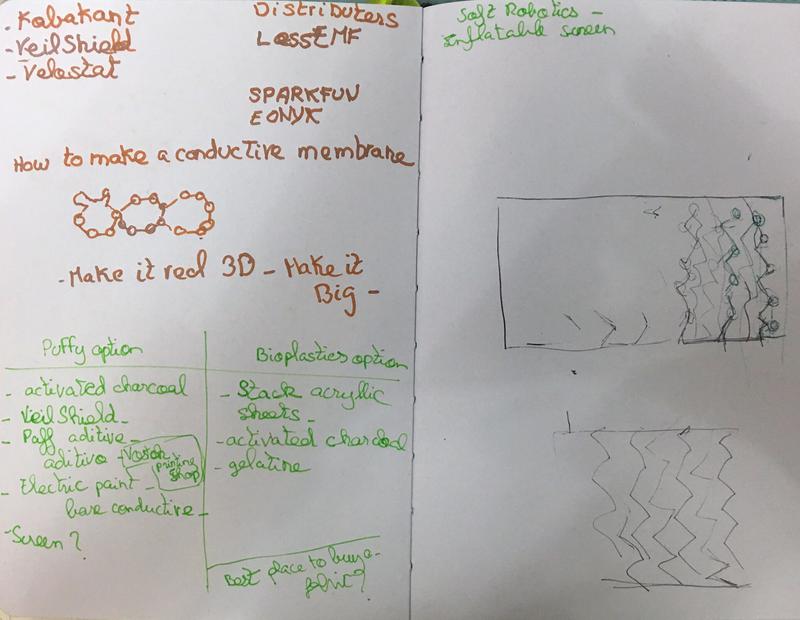 - Kobakant
- VeilShield
- Velostat
Distributers
LessEMF
SPARKFUN
EONYX
How to make a conductive membrane
- Make it red 3D - Make it
Big -
Puffy option
- activated charcoal
- VeilShield -
- Paff aditive -
aditivo -
printing
shop
- Electric paint -
bare conductive -
- Screen ?
Bioplastics option
- Stack acryllic
sheets -
- activated charcoal
- gelatine
Best place to buy a
Soft Robotics -
Inflatable screen